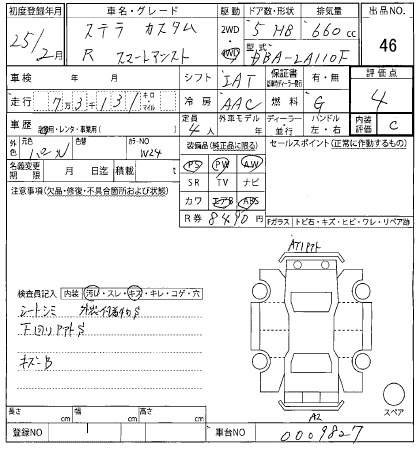 初度登録年月 車名・グレード 駆動 ドア数・形状 排気量 出品NO.
25/2月 ステラ カスタム R スマートアシスト 2WD・4WD 5 HB 660cc 46
型式 DBA-LA110F
車検 年 月 シフト IAT 保証書 有・無 評価点
走行 7万3千131 キロ マイル 冷房 AAC 燃料 G 4
車歴 自家用・レンタ・事業用( ) 定員 4人 外車モデル 年 ディーラー 並行 ハンドル 左・右 内装評価 C
外色 元色 パール 色替 カラーNO W24
名義変更期限 月 日迄 積載 t
装備品(純正品に限る) セールスポイント(正常に作動するもの)
PS PW AW
SR TV ナビ
カワ エアB ABS
R券 8490円
注意事項(欠品・修復・不具合箇所および状態)
Fガラス トビ石・キズ・ヒビ・ワレ・リペア跡
検査員記入 内装 汚れ・スレ・キズ・キレ・コゲ・穴
シートシミ
下回りサビS
キズB
A2
スペア
長さ cm 幅 cm 高さ cm
登録NO 車台NO 0009827